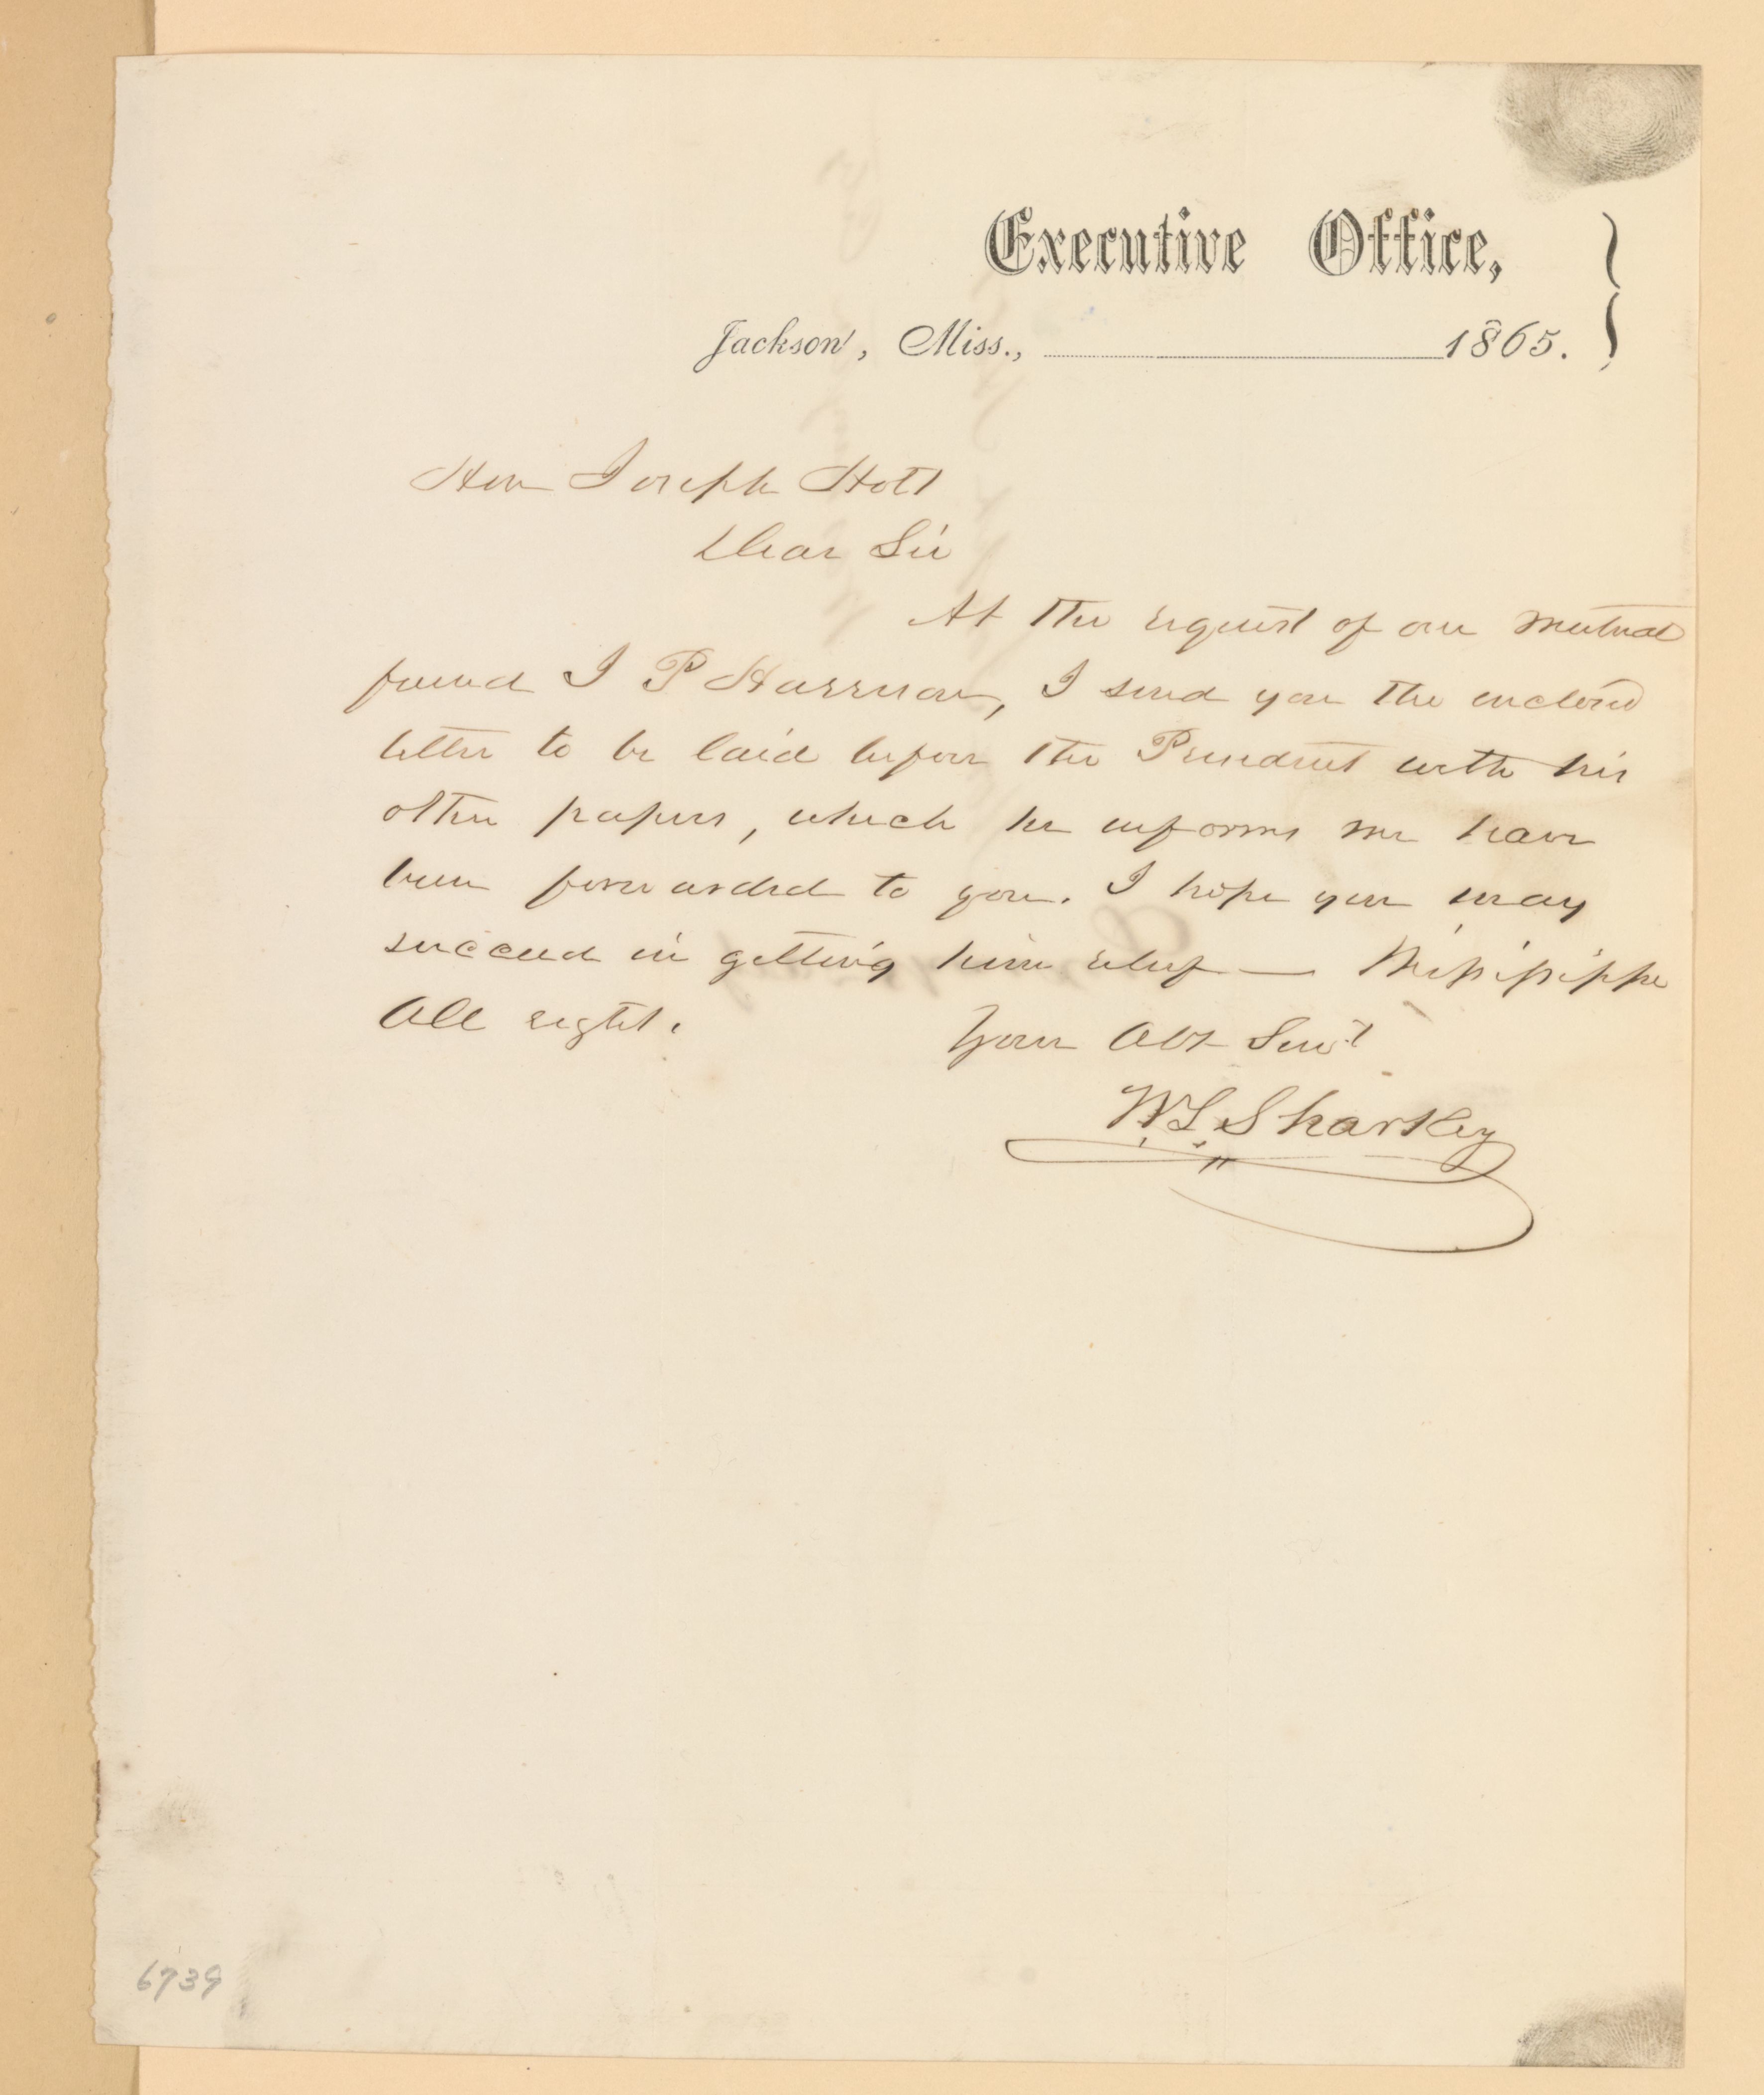 Executive Office,
Jackson, Miss., 1865.
Hon Joseph Holt
Dear Sir
At the request of our mutual
friend J P Harrison, I send you the enclosed
letter to be laid before the President with his
other papers, which he informs me have
been forwarded to you. I hope you may
succeed in getting him relief — Mississippi
All right.
Your Obt Servt
W. L. Sharkey
6739